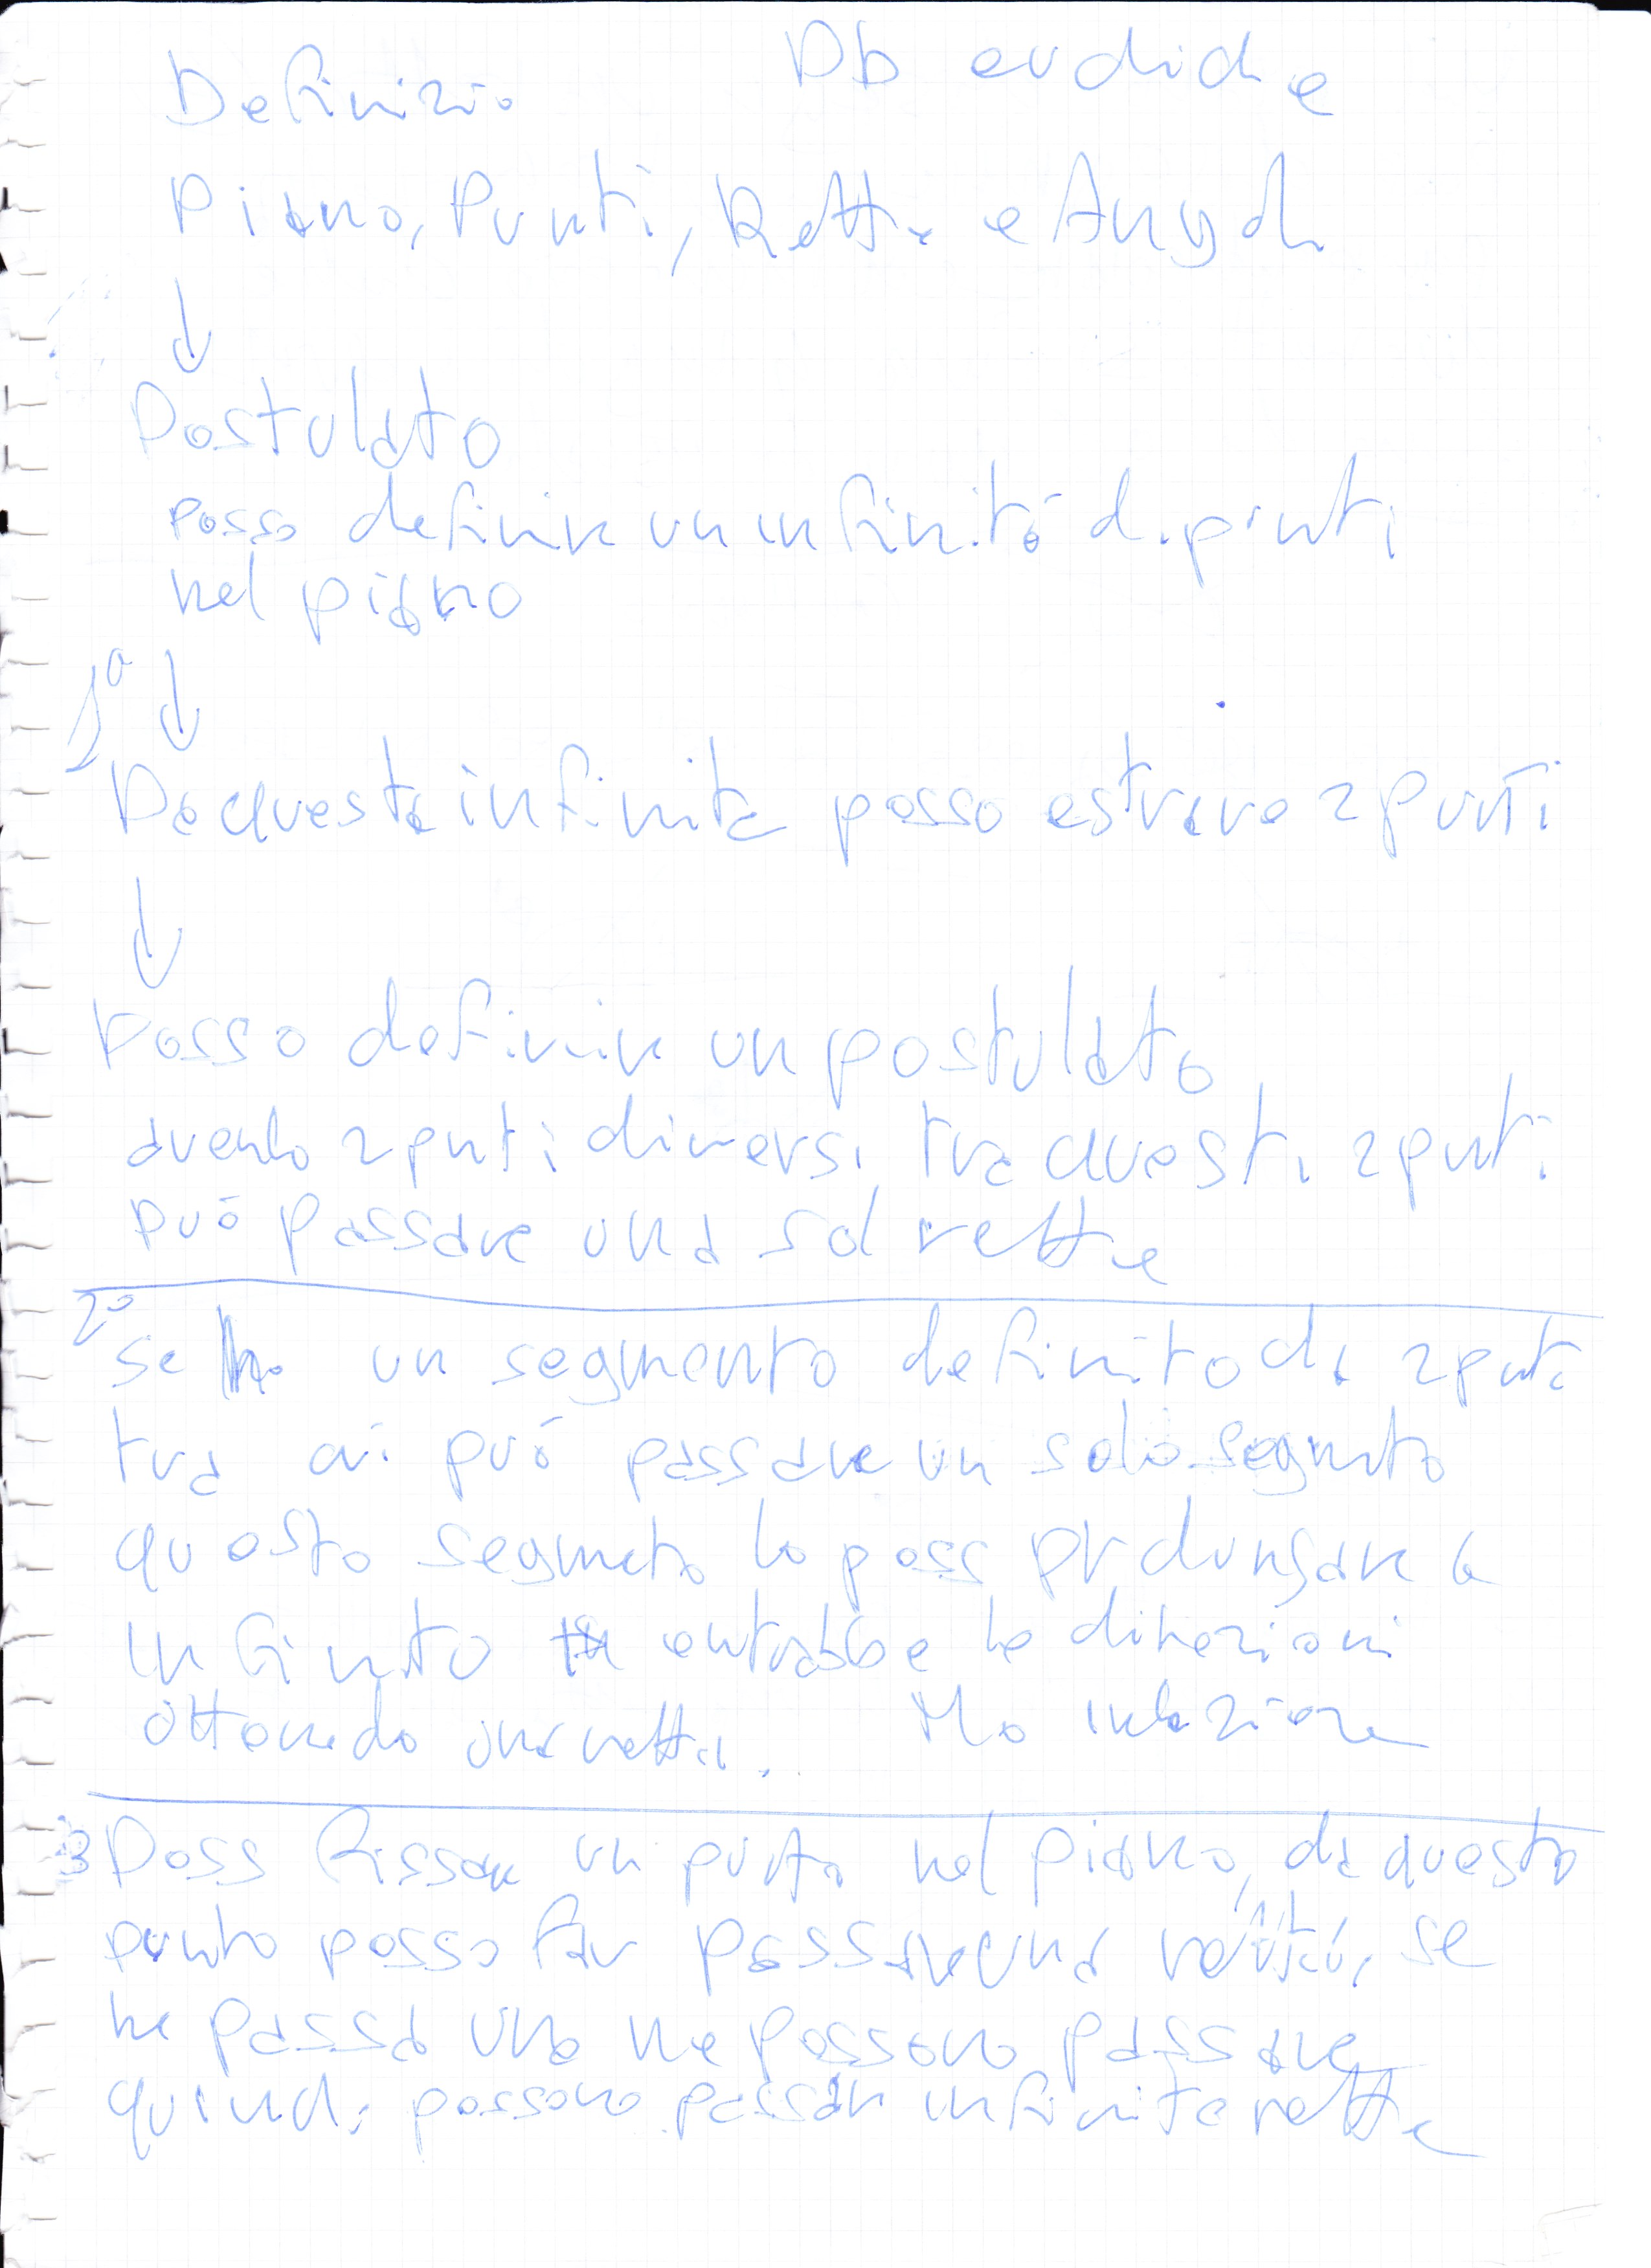 Definizio
Db euclide
Piano, Punti, Rette e Angoli
↓
Postulato
posso definire un infinitá di punti
nel piano
1° ↓
Da questa infinita posso estrare 2 punti
↓
Posso definire un postulato
avendo 2 punti diversi, tra questi 2 punti
puó passare una sol retta
2°
se ho un segmento definito da 2 punti
tra cui puó passare un solo segmento
questo segmeto lo poss prolungare a
infinito entrabbe le direzioni
ottenedo una retta.
3 Poss fissare un punto nel piano, da questo
punto posso far passare una retta, se
ne passa una ne possono passare
quindi possono passare infinite rette